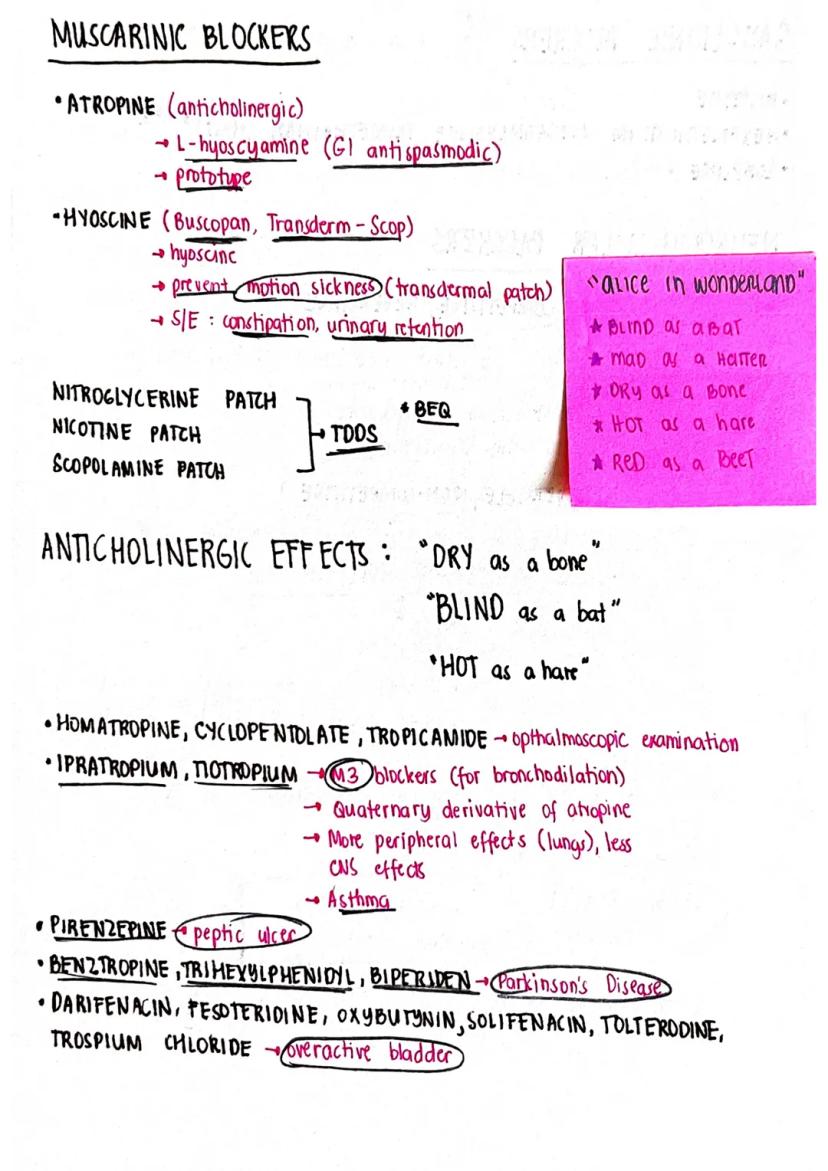 MUSCARINIC BLOCKERS
• ATROPINE (anticholinergic)
→ L-hyoscyamine (GI antispasmodic)
→ prototype
• HYOSCINE (Buscopan, Transderm-Scop)
→ hyoscine
→ prevent motion sickness (transdermal patch)
→ S/E : constipation, urinary retention
"ALICE IN WONDERLAND"
★ BLIND as a BAT
★ MAD as a HATTER
★ DRY as a BONE
★ HOT as a hare
★ RED as a BEET
NITROGLYCERINE PATCH
NICOTINE PATCH
SCOPOLAMINE PATCH
TDDS
* BEQ
ANTICHOLINERGIC EFFECTS : "DRY as a bone"
"BLIND as a bat"
"HOT as a hare"
• HOMATROPINE, CYCLOPENTOLATE, TROPICAMIDE → opthalmoscopic examination
• IPRATROPIUM, TIOTROPIUM → M3 blockers (for bronchodilation)
→ Quaternary derivative of atropine
→ More peripheral effects (lungs), less
CNS effects
→ Asthma
• PIRENZEPINE → peptic ulcer
• BENZTROPINE, TRIHEXYLPHENIDYL, BIPERIDEN → Parkinson's Disease
• DARIFENACIN, FESOTERIDINE, OXYBUTYNIN, SOLIFENACIN, TOLTERODINE,
TROSPIUM CHLORIDE → overactive bladder